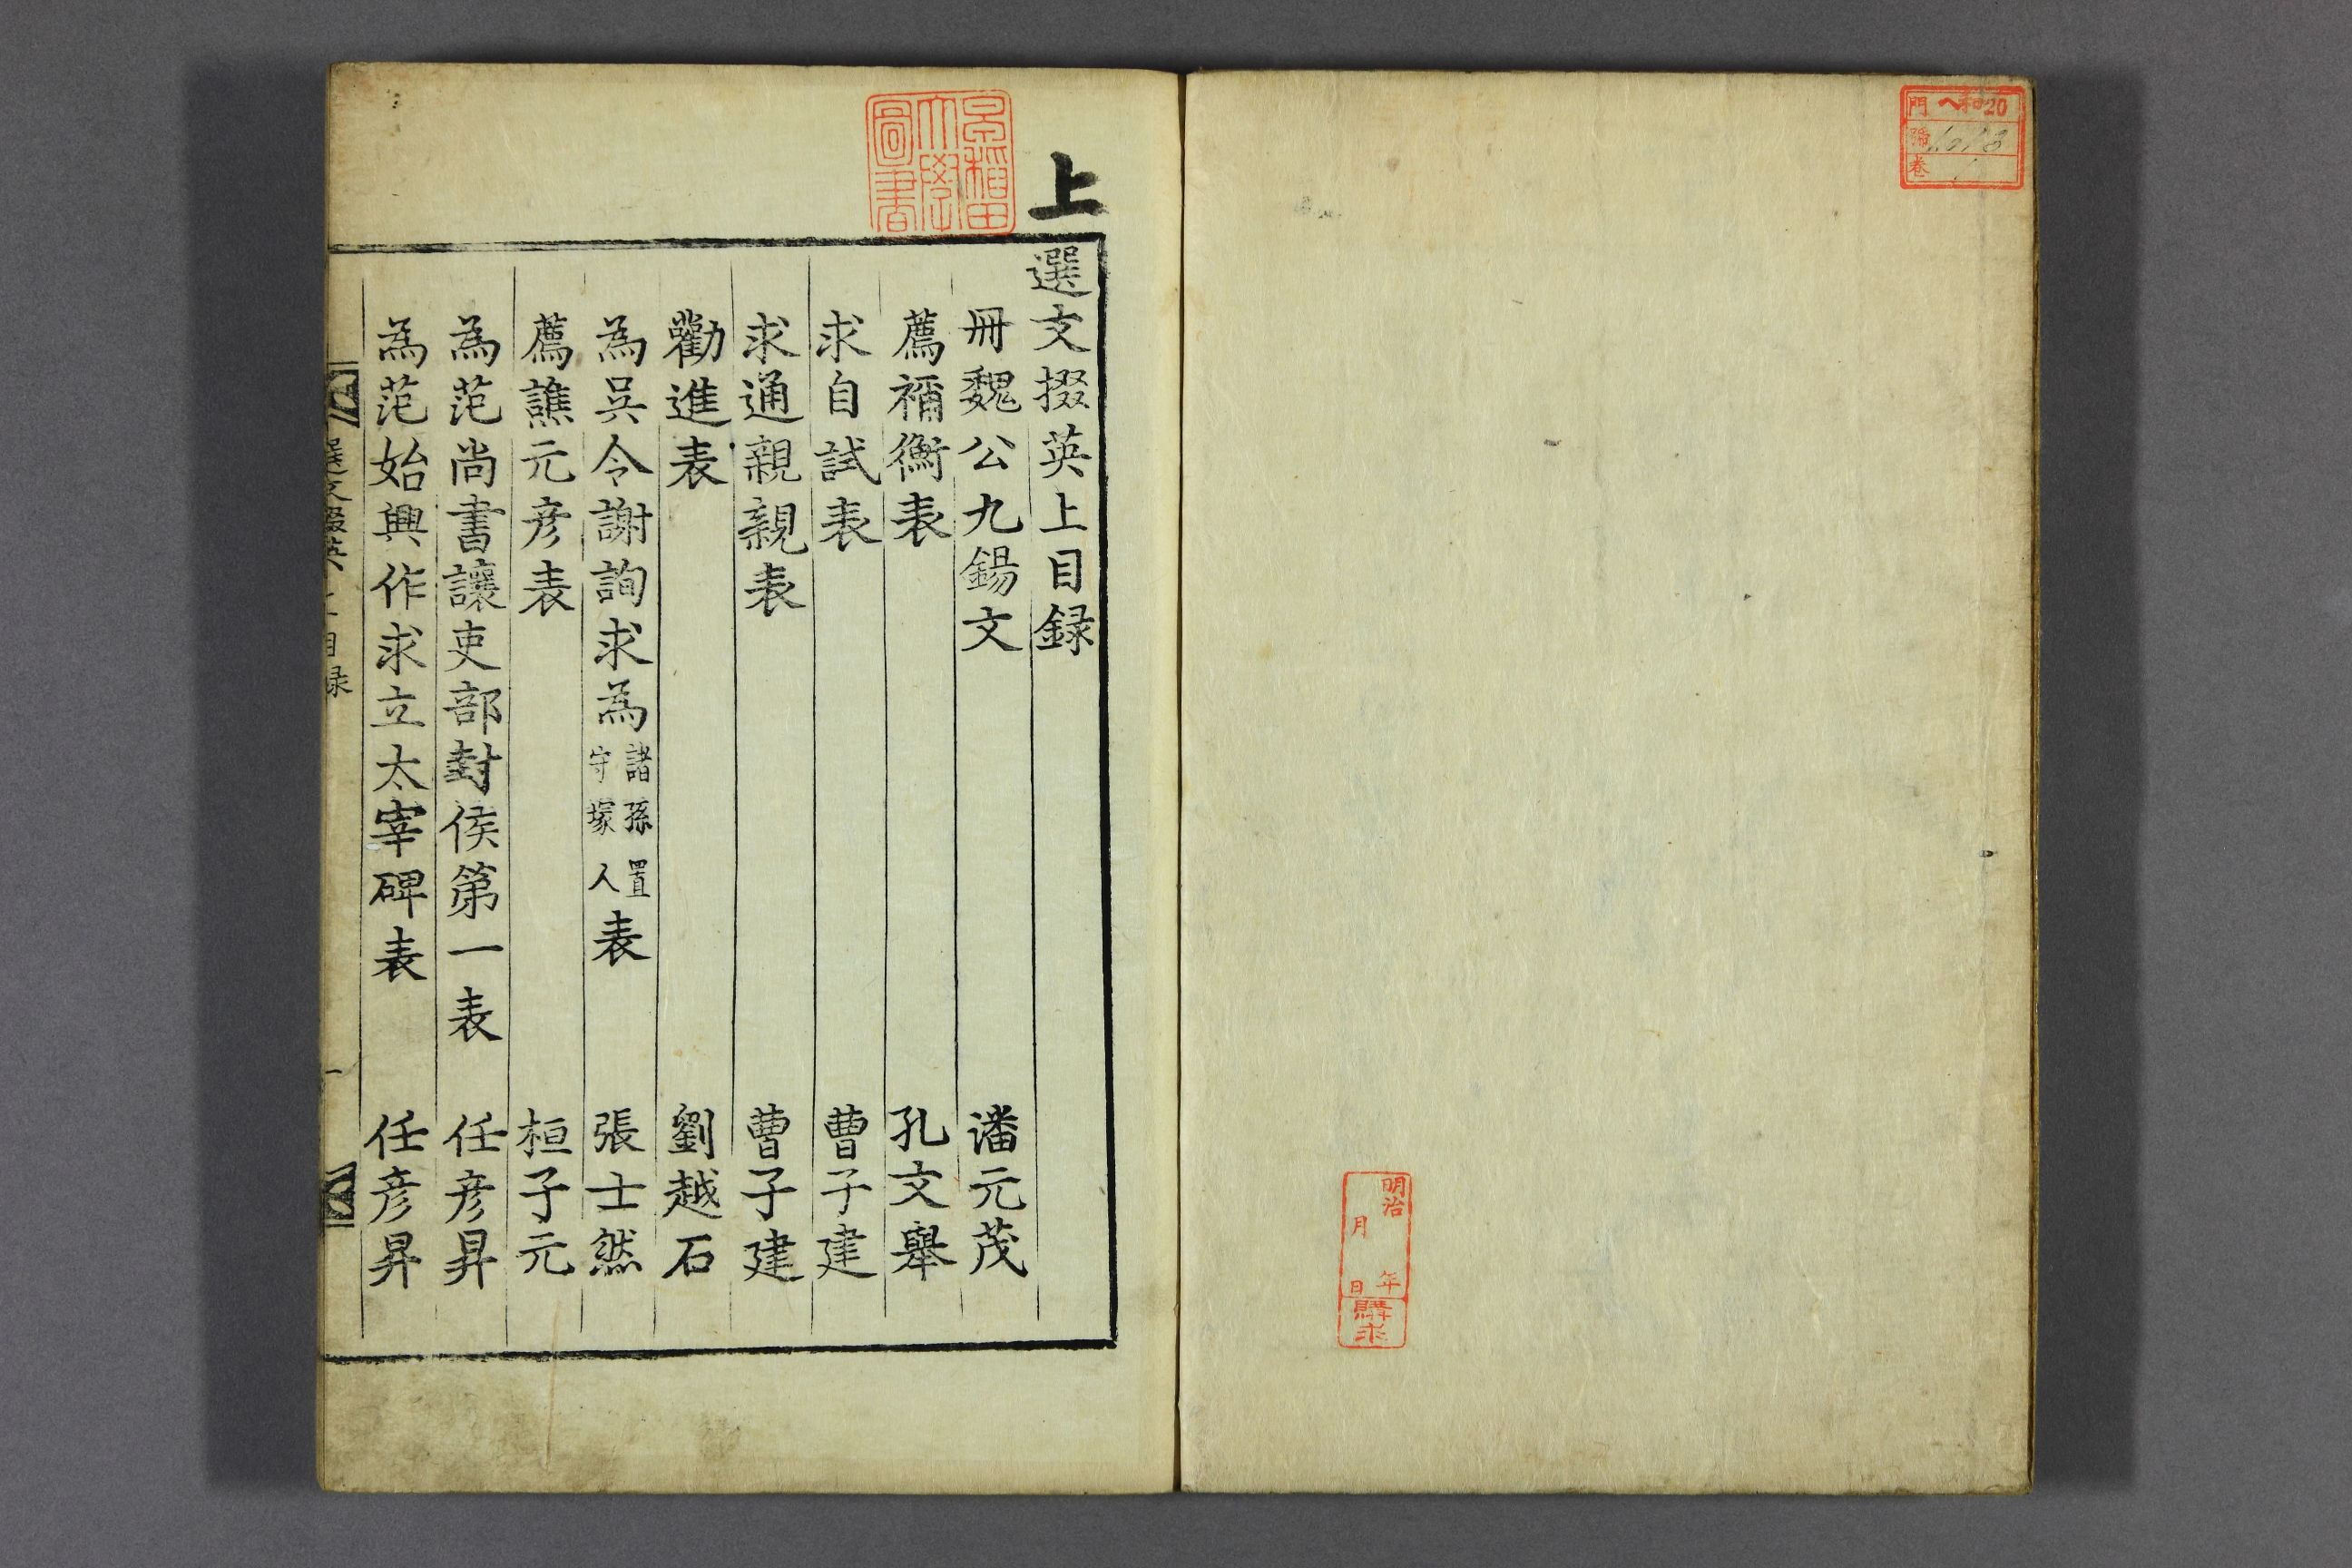 門 ヘ和20
號 1018
卷 1
明治 年
月 日
購求
早稲田
大學
圖書
上
選文掇英上目録
冊魏公九錫文 潘元茂
薦禰衡表 孔文舉
求自試表 曹子建
求通親親表 曹子建
勸進表 劉越石
為吳令謝詢求為諸孫置守塚人表 張士然
薦譙元彦表 桓子元
為范尚書讓吏部封侯第一表 任彦昇
為范始興作求立太宰碑表 任彦昇
選文掇英上目録 一